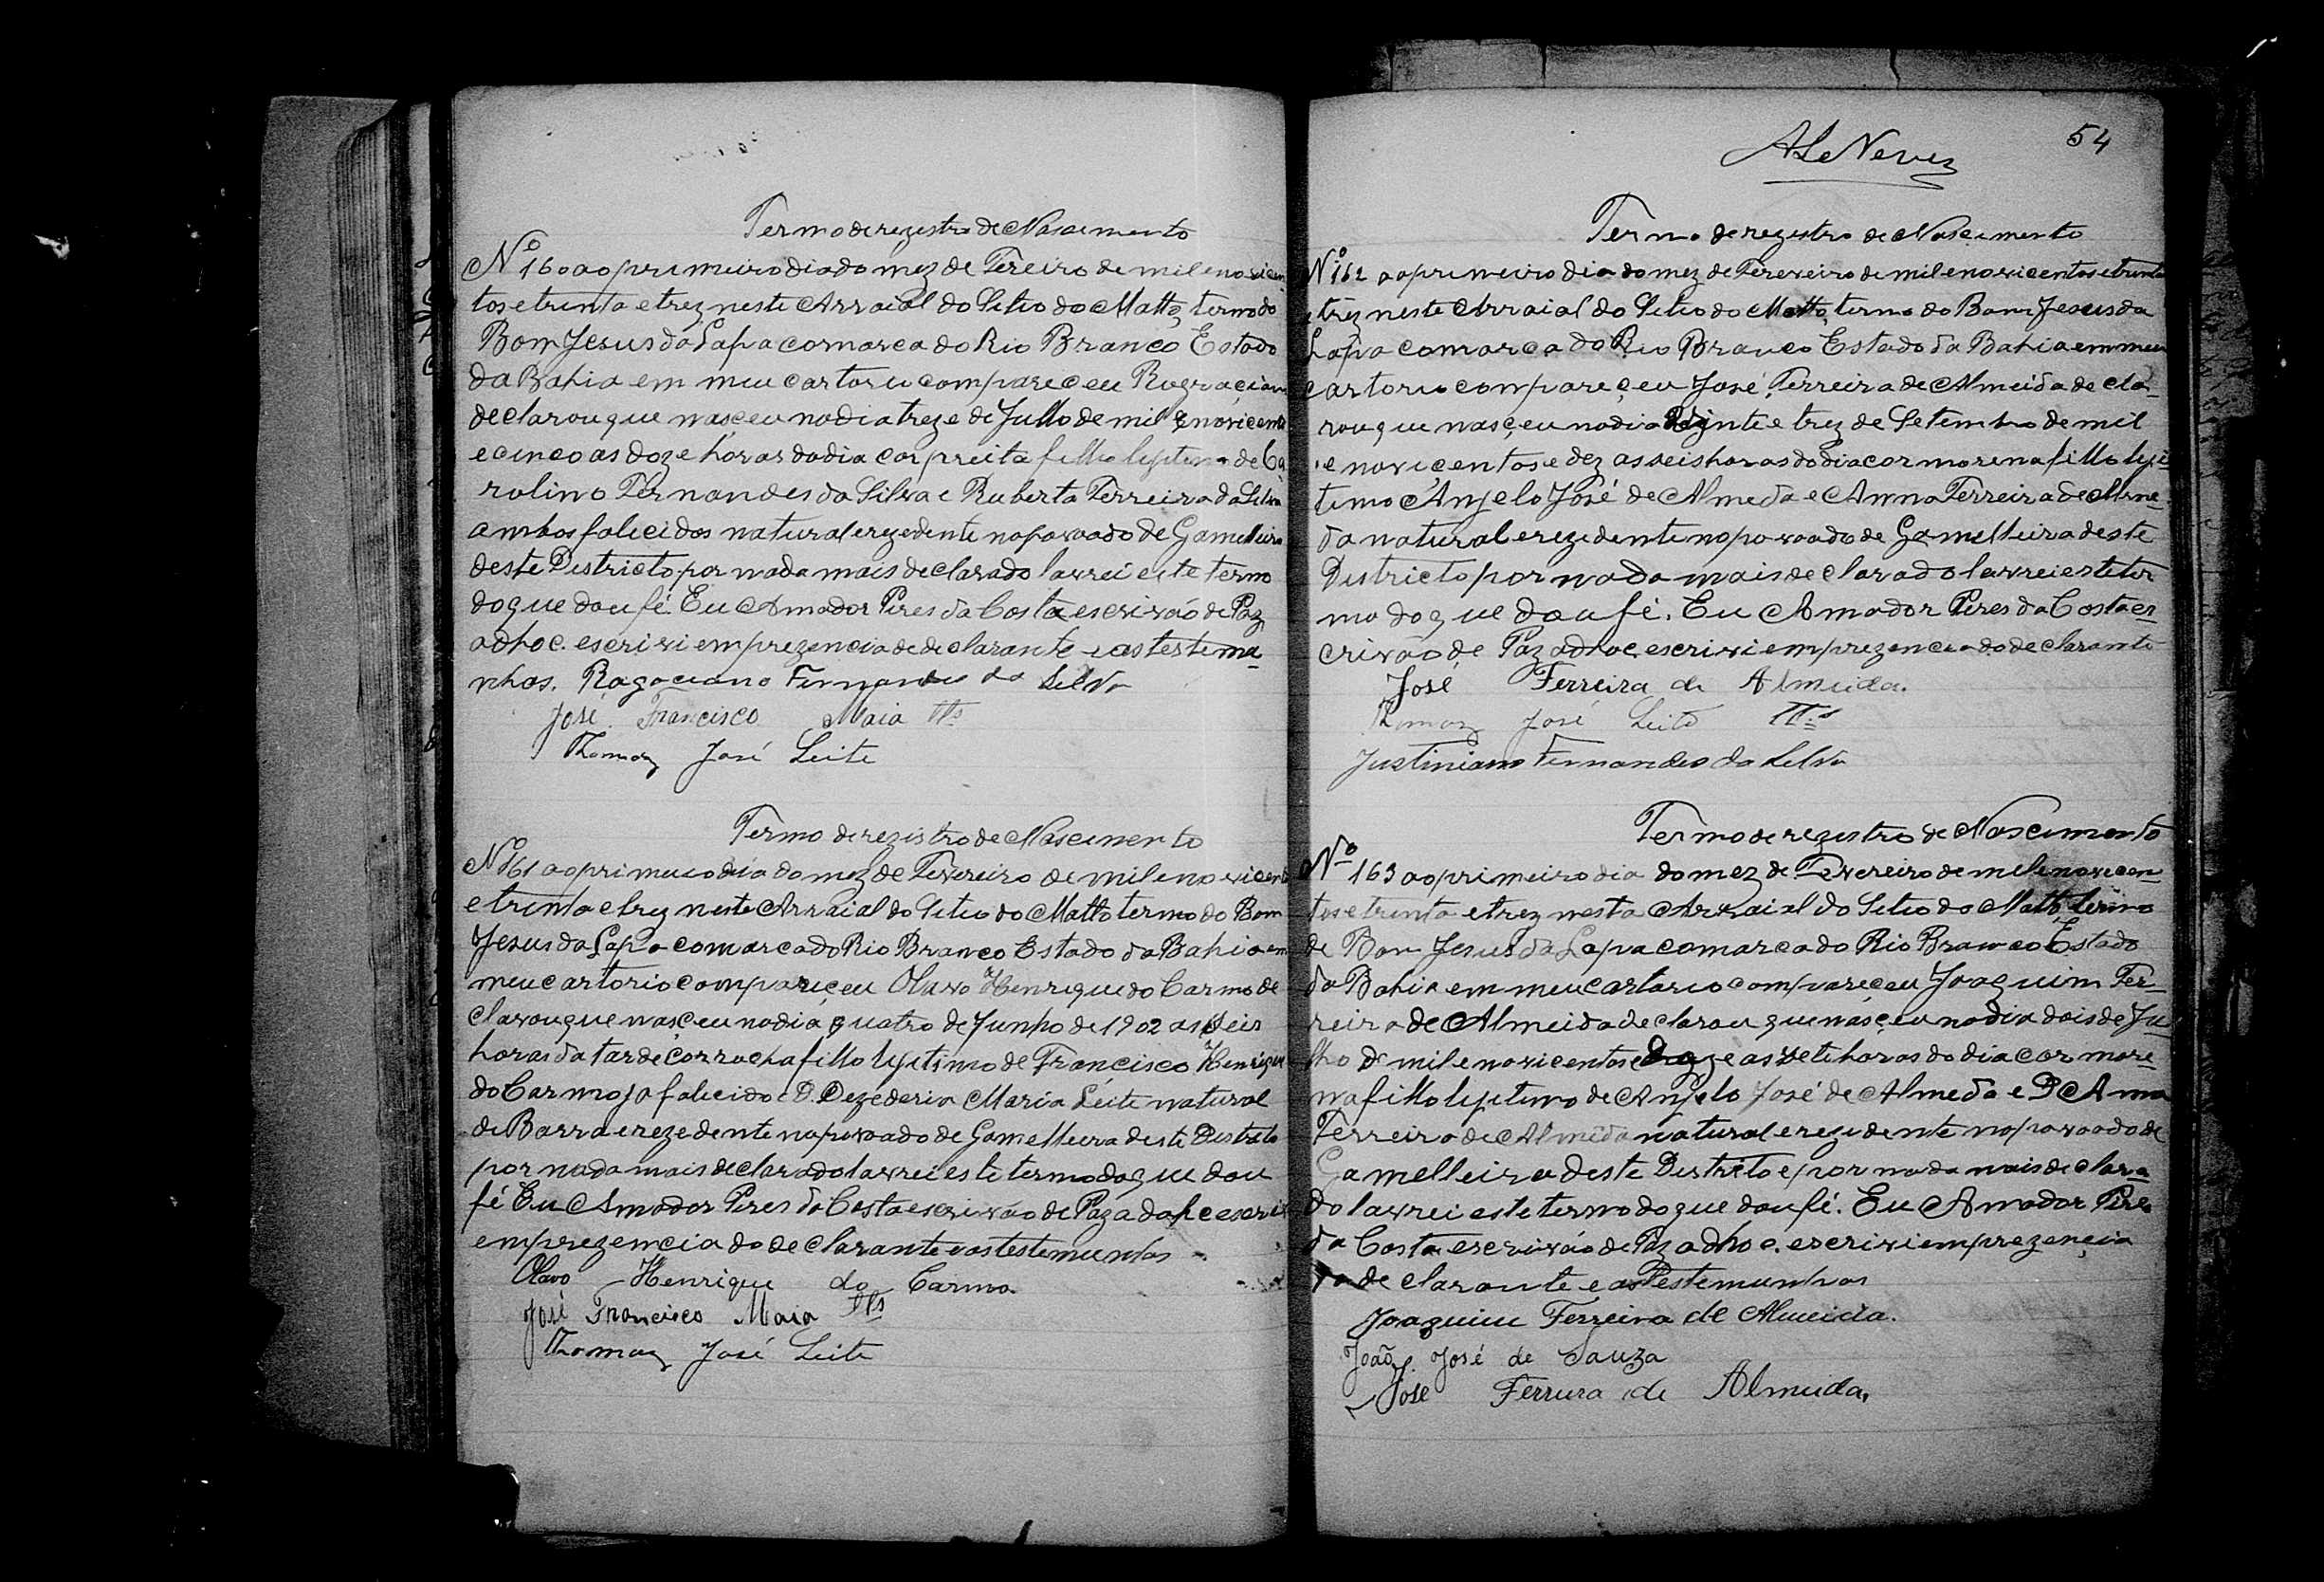 Termo de registro de Nascimento
Nº 160 ao primeiro dia do mez de Fereiro de mil e novicen
tos e trinta e trez neste Arraial do Sitio do Matto, termo do
Bom Jesus da Lapa comarca do Rio Branco Estado
da Bahia em meu cartorio compareceu Rogaciano
declarou que nasceu no dia treze de Julho de mil e novicentos
e cinco as doze horas do dia cor preita filho legitimo de Ca
rolino Fernandes da Silva e Ruberta Ferreira da Silva
ambos falicidos natural e rezedente no povoado de Gamelleira
deste Districto por nada mais declarado lavrei este termo
do que dou fé. Eu Amador Peres da Costa escrivão de Paz
adhoc. escrivi em prezencia de declarante e as testemu
nhas. Rogaciano Fernandes da Silva
José Francisco Maia Tts
Thomaz José Leite
Termo de registro de Nascimento
Nº 161 ao primeiro dia do mez de Fevereiro de mil e novicent
e trinta e trez neste Arraial do Sitio do Matto termo do Bom
Jesus da Lapa comarca do Rio Branco Estado da Bahia em
meu cartorio compareceu Olavo Henrique do Carmo de
clarou que nasceu no dia quatro de Junho de 1902 as seis
horas da tarde cor rocha filho legitimo de Francisco Henrique
do Carmo ja falicido e D. Dezederia Maria Leite natural
de Barra e rezedente no povoado de Gamelleira deste Districto
por nada mais declarado lavrei este termo do que dou
fé Eu Amador Peres da Costa escrivão de Paz adhoc escrivi
em prezencia do declarante e as testemunhas
Olavo Henrique do Carmo
José Francisco Maia Tts
Thomaz José Leite
ALeNeves
54
Termo de registro de Nascimento
Nº 162 ao primeiro dia do mez de Fereveiro de mil e novicentos e trinta
e trez neste Arraial do Sitio do Matto, termo do Bom Jesus da
Lapa comarca do Rio Branco Estado da Bahia em meu
cartorio compareceu José Ferreira de Almeida decla-
rou que nasceu no dia vinte e trez de Setembro de mil
e novicentos e dez as seis horas do dia cor morena filho legi
timo Angelo José de Almeda e Anna Ferreira de Alme-
da natural e rezidente no povoado de Gamelleira deste
Districto por nada mais declarado lavrei este ter
mo do que dou fé. Eu Amador Peres da Costa es-
crivão de Paz adhoc escrivi em prezencia do declarante
José Ferreira de Almeida.
Thomaz José Leite Tts
Justiniano Fernandes da Silva
Termo de registro de Nascimento
Nº 163 ao primeiro dia do mez de Fevereiro de mil e novicen-
tos e trinta e trez nesta Arraial do Sitio do Matto, termo
de Bom Jesus da Lapa comarca do Rio Branco Estado
da Bahia em meu cartorio compareceu Joaquim Fer-
reira de Almeida declarou que nasceu no dia dois de Ju
lho de mil e novicentos e doze as sete horas do dia cor more-
na filho legitimo de Angelo José de Almeda e D Anna
Ferreira de Almeda natural e rezidente no povoado de
Gamelleira deste Districto e por nada mais declara-
do lavrei este termo do que dou fé. Eu Amador Peres
da Costa escrivão de Paz adhoc. escrivi em prezencia
do declarante e as Testemunhas
Joaquim Ferreira de Almeida.
João José de Sauza
José Ferrura de Almeida,